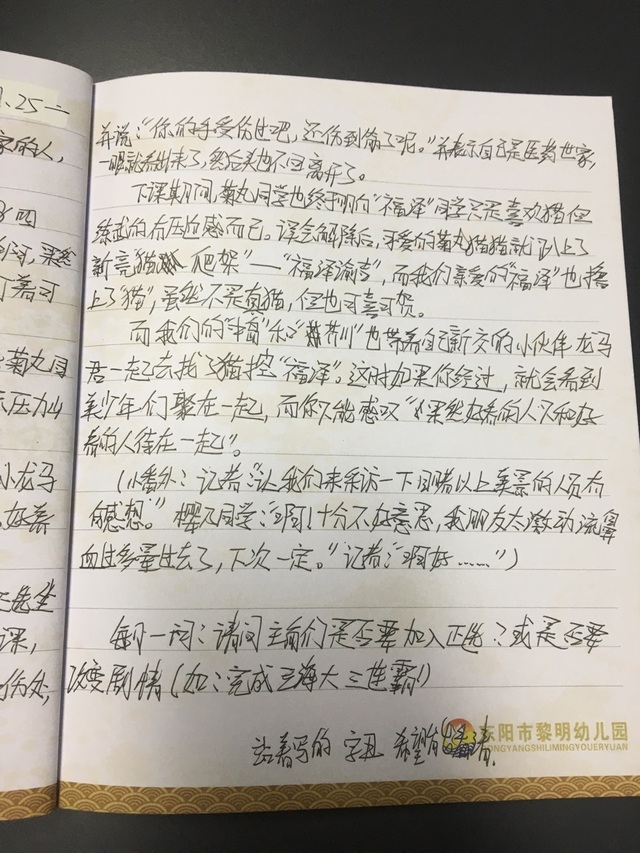 1.25一
家的人,
并说:“你的手受伤过吧,还伤到筋了呢。”并表示自己是医药世家,
一眼就看出来了,然后头也不回离开了。
下课期间,菊丸同学也终于明白“福泽”同学只是喜欢猫但
练武的有压迫感而已。误会解除后,可爱的菊丸猫猫就趴上了
新亮猫 爬架”—“福泽谕吉”,而我们亲爱的“福泽”也撸
上了“猫”,虽然不是真猫,但也可喜可贺。
而我们的 和“芥川”也带着自己新交的小伙伴龙马
君一起去找了猫控“福泽”。这时如果你经过,就会看到
美少年们聚在一起,而你只能感叹“果然好看的人只和好
看的人待在一起”。
(小番外:记者:“让我们来采访一下目睹以上美景的人员有
何感想。”樱乃同学:“啊!十分不好意思,我朋友太激动流鼻
血过多晕过去了,下次一定。”记者:“啊好……”)
每日一问:请问主角们是否要加入正选?或是否要
改变剧情(如:完成立海大三连霸!)
站着写的 字丑 希望 看
东阳市黎明幼儿园
DONGYANGSHILIMINGYOUERYUAN
菊丸同
压力山
小龙马
课,